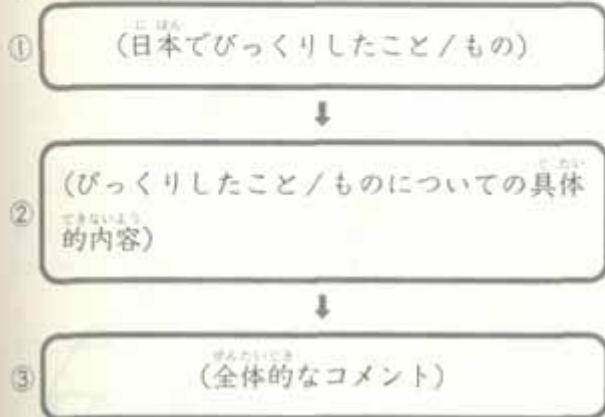 ① (日本でびっくりしたこと/もの)
② (びっくりしたこと/ものについての具体
的内容)
③ (全体的なコメント)